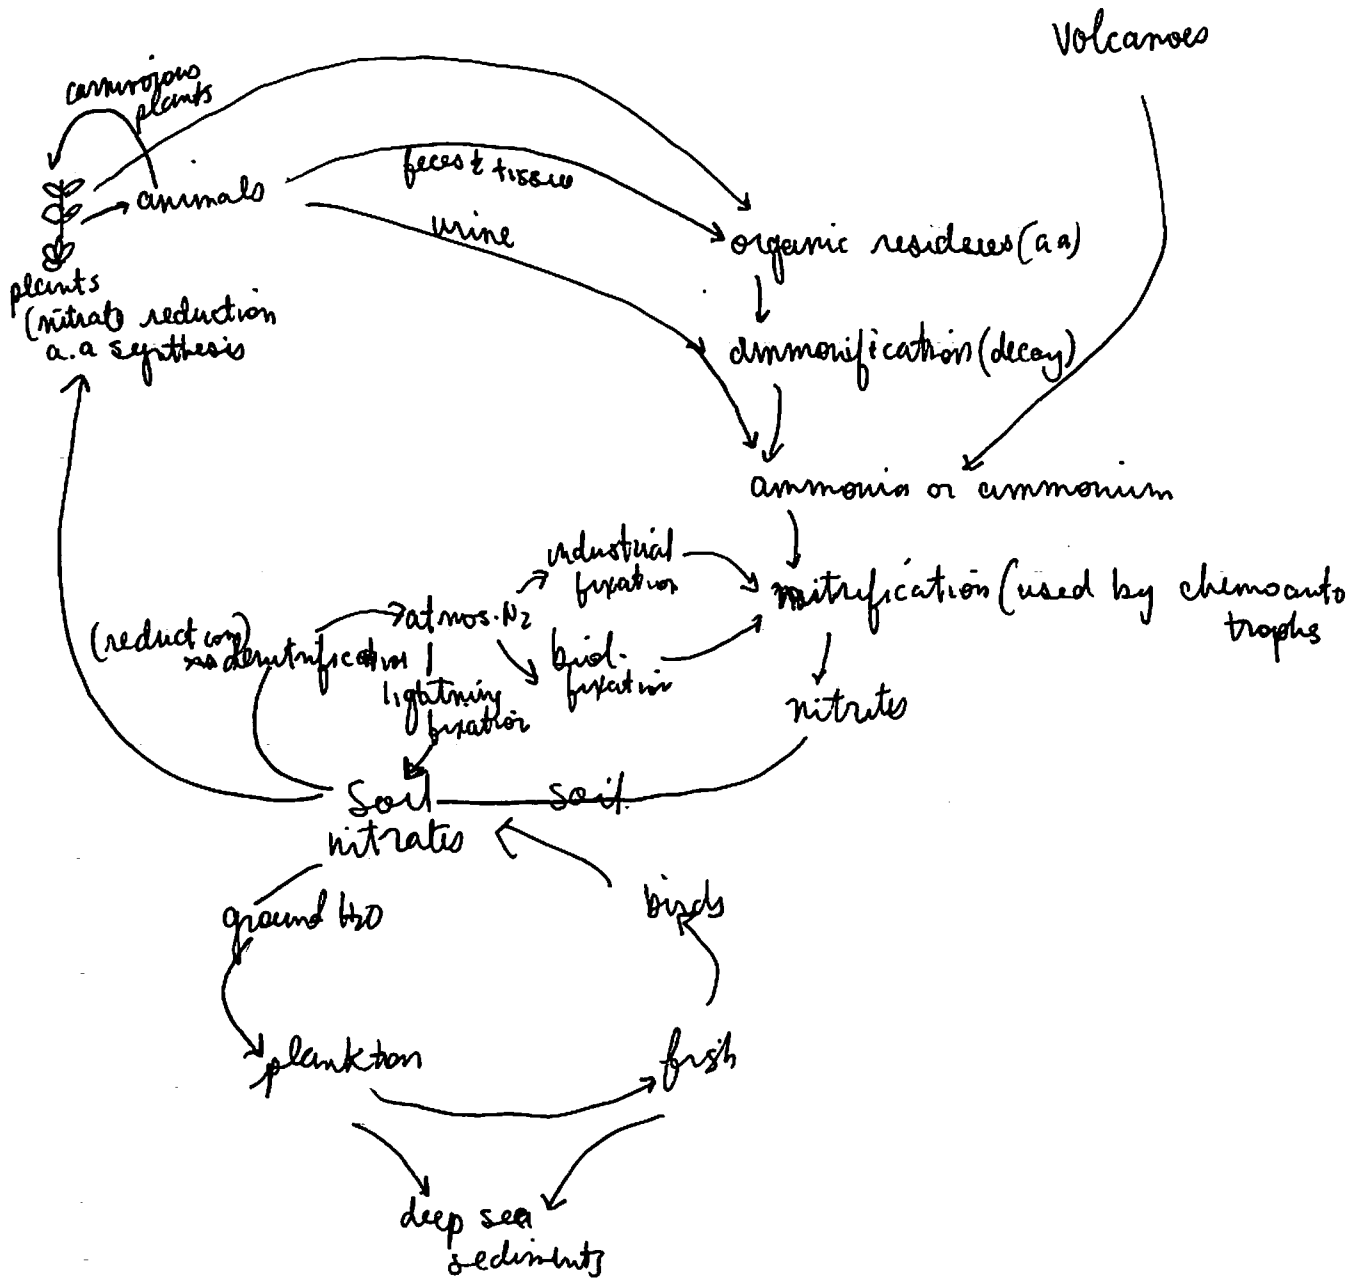 Volcanoes
carnivorous
plants
animals
feces & tissue
urine
organic residues (aa)
plants
(nitrate reduction
a.a synthesis
ammonification (decay)
ammonia or ammonium
industrial
fixation
nitrification (used by chemoauto
trophs
atmos. N2
(reduction)
denitrification
biol.
fixation
lightning
fixation
nitrates
Soil
soil
nitrates
ground H2O
birds
plankton
fish
deep sea
sediments